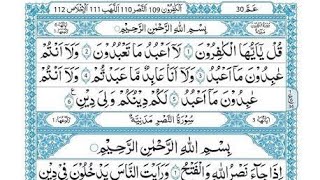 عَمَّ 30
الكٰفِرُوْن 109 النَّصْر 110 اللَّهَب 111 الاِخْلَاص 112
بِسْمِ اللّٰهِ الرَّحْمٰنِ الرَّحِيْمِ
قُلْ يٰۤاَيُّهَا الْكٰفِرُوْنَ ۙ۝۱ لَاۤ اَعْبُدُ مَا تَعْبُدُوْنَ ۙ۝۲ وَلَاۤ اَنْتُمْ
عٰبِدُوْنَ مَاۤ اَعْبُدُ ۚ۝۳ وَلَاۤ اَنَا عَابِدٌ مَّا عَبَدْتُّمْ ۙ۝۴ وَلَاۤ اَنْتُمْ
عٰبِدُوْنَ مَاۤ اَعْبُدُ ؕ۝۵ لَكُمْ دِيْنُكُمْ وَلِيَ دِيْنِ ۠۝۶
سُوْرَةُ النَّصْرِ مَدَنِيَّةٌ
بِسْمِ اللّٰهِ الرَّحْمٰنِ الرَّحِيْمِ
اِذَا جَآءَ نَصْرُ اللّٰهِ وَالْفَتْحُ ۙ۝۱ وَرَاَيْتَ النَّاسَ يَدْخُلُوْنَ فِيْ دِيْنِ